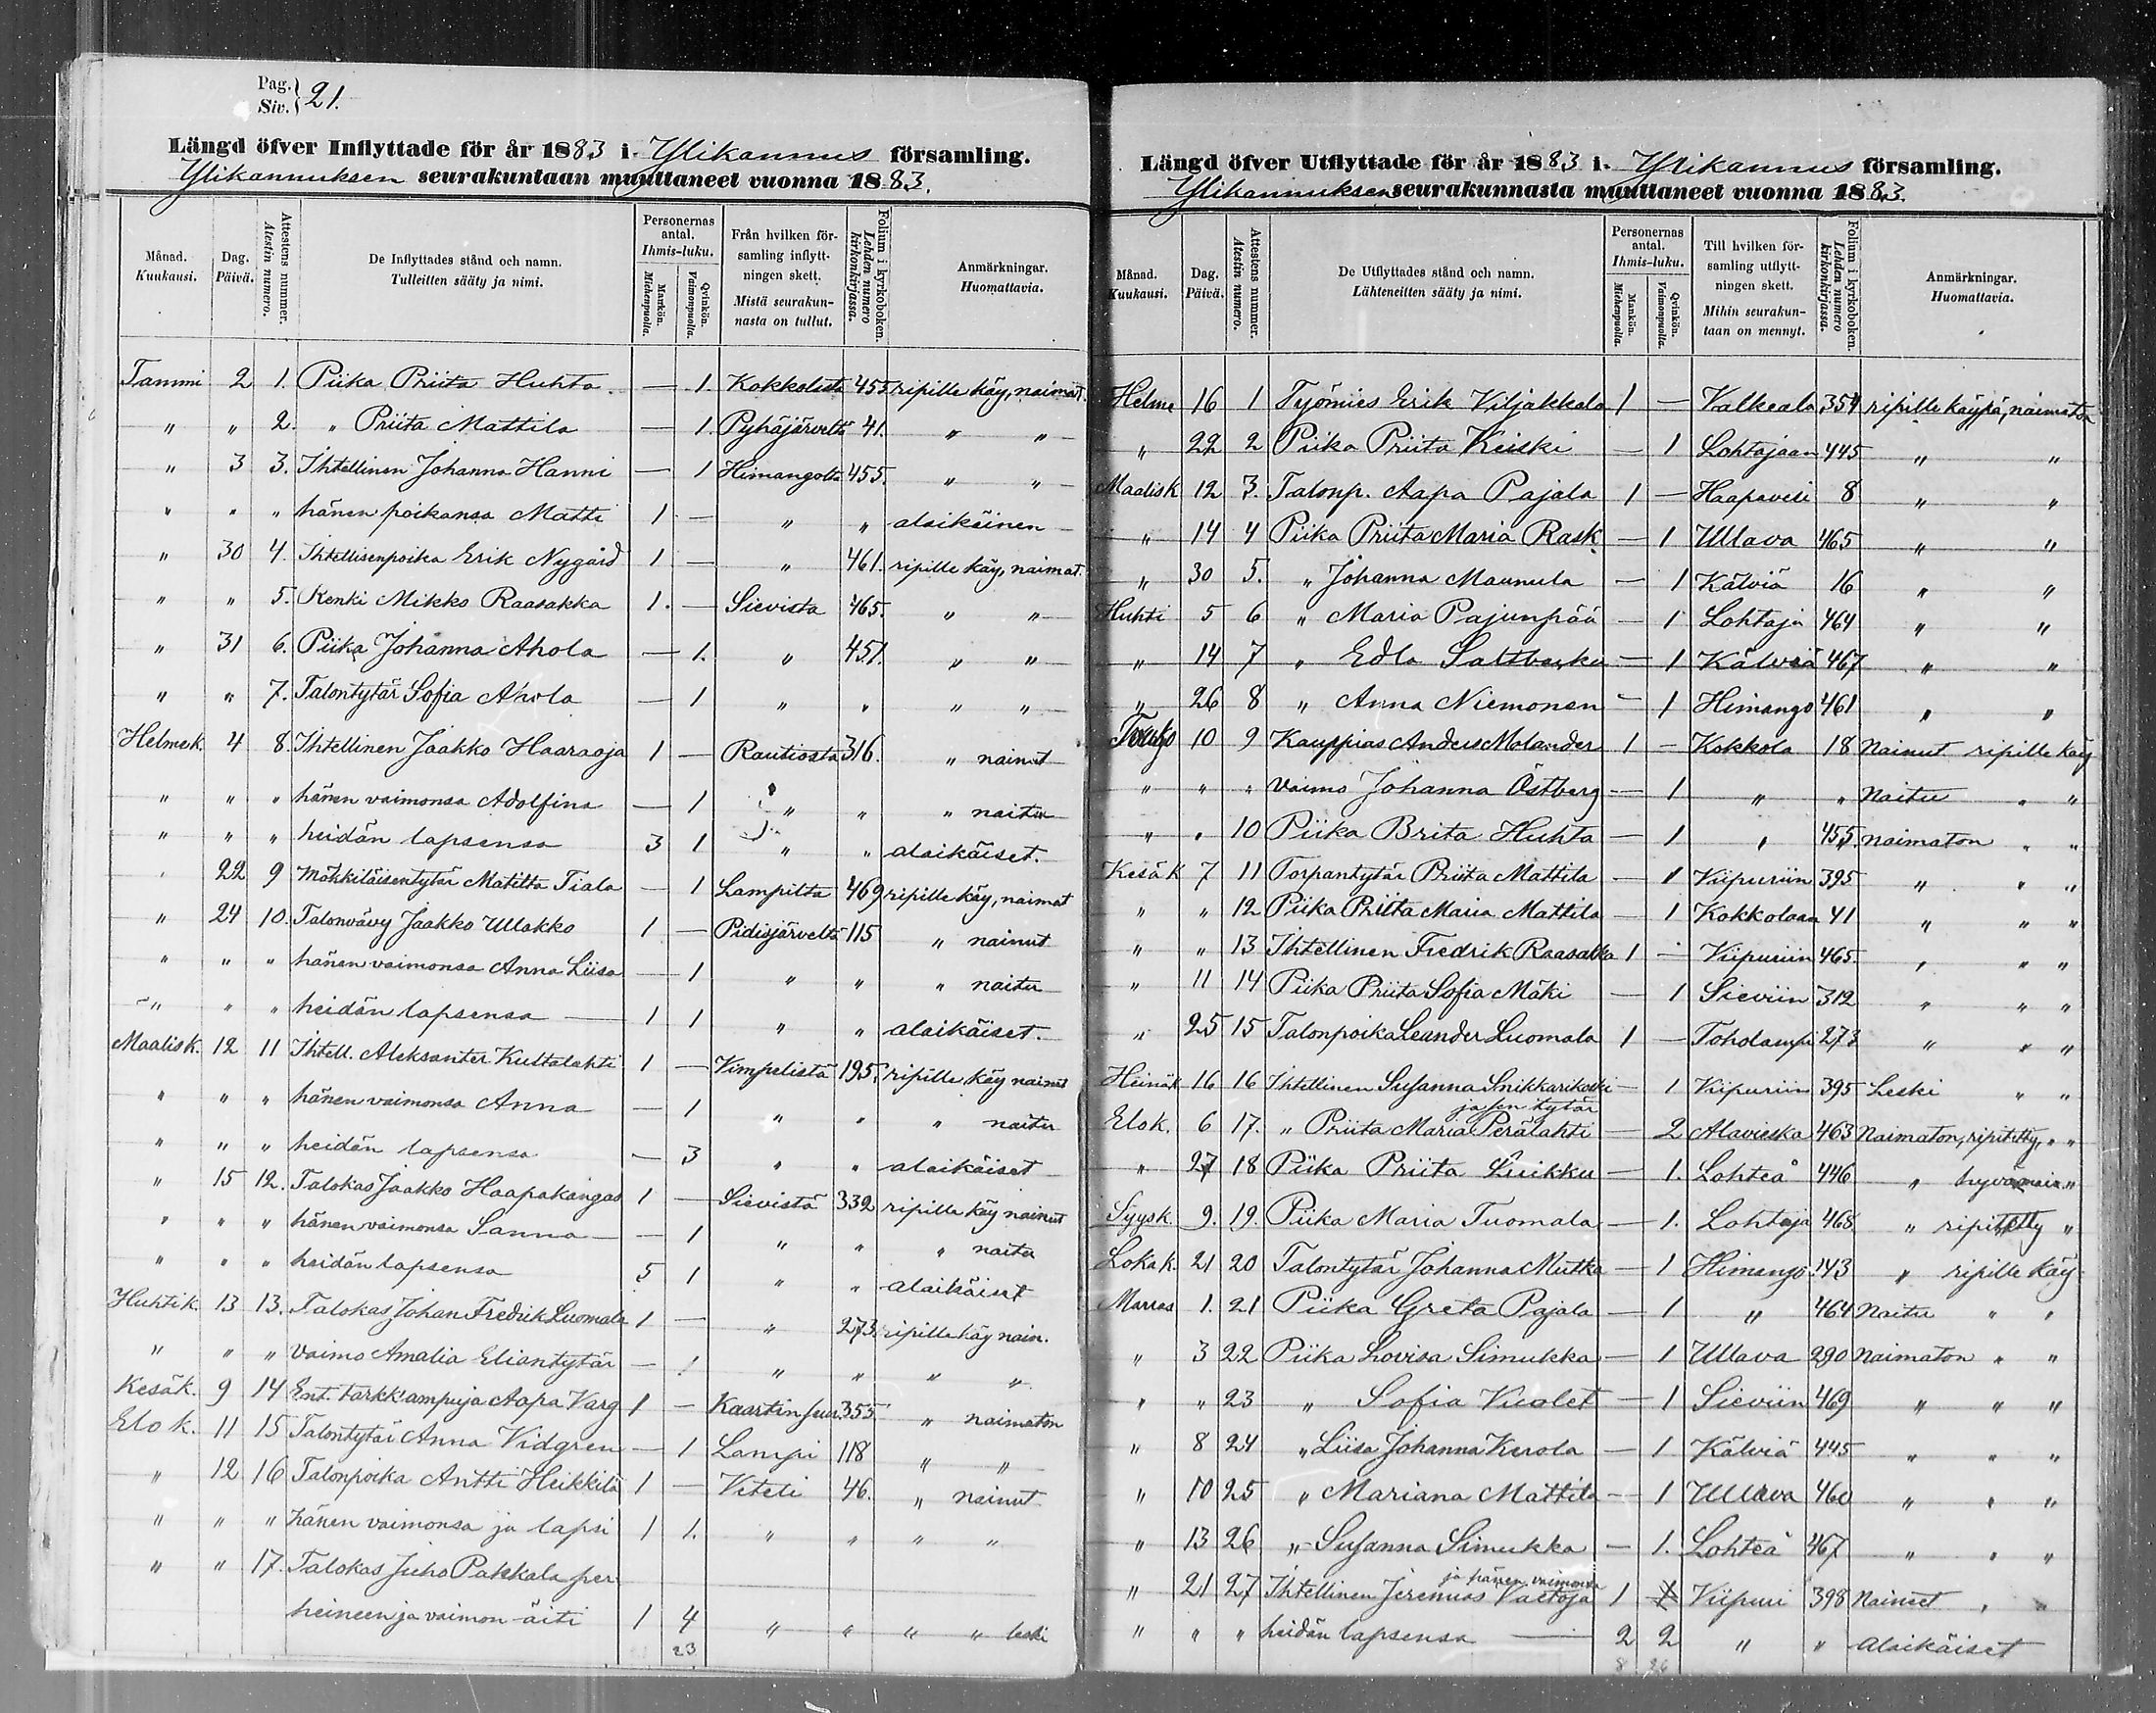 Pag. } 21.
Siv.
Längd öfver Inflyttade för år 1883 i Ylikannus församling.
Ylikannuksen seurakuntaan muuttaneet vuonna 1883.
Månad. Kuukausi. | Dag. Päivä. | Attestens nummer. Atestin numero. | De Inflyttades stånd och namn. Tulleitten sääty ja nimi. | Personernas antal. Ihmis-luku. Mankön. Miehenpuolia. Qvinkön. Vaimonpuolia. | Från hvilken församling inflyttningen skett. Mistä seurakunnasta on tullut. | Folium i kyrkoboken. Lehden numero kirkonkirjassa. | Anmärkningar. Huomattavia.
Tammi 2 1. Piika Priita Huhta — 1. Kokkolasta 455 ripille käy, naimat.
" " 2. " Priita Mattila — 1. Pyhäjärveltä 41. " "
" 3 3. Ihtellinen Johanna Hanni — 1 Himangolta 455. " "
" " " hänen poikansa Matti 1. — " " alaikäinen
" 30 4. Ihtellisenpoika Erik Nygård 1 — " 461. ripille käy, naimat.
" " 5. Renki Mikko Raasakka 1. — Sievista 465. " "
" 31 6. Piika Johanna Ahola — 1. " 451. " "
" " 7. Talontytär Sofia Ahola — 1 " " " "
Helmek. 4 8. Ihtellinen Jaakko Haaraoja 1 — Rautiosta 316. " nainut
" " " hänen vaimonsa Adolfina — 1 " " " naitu
" " " heidän lapsensa 3 1 " " alaikäiset.
" 22 9 Mökkiläisentytär Matilta Tiala — 1 Lampilta 469 ripille käy, naimat
" 24 10. Talonvävy Jaakko Ullakko 1 — Pidisjärveltä 115 " nainut
" " " hänen vaimonsa Anna Liisa — 1 " " " naitu
" " " heidän lapsensa — 1 1 " " alaikäiset.
Maalisk. 12 11 Ihtell. Aleksanter Kultalahti 1 — Vimpelistä 195. ripille käy nainut
" " " hänen vaimonsa Anna — 1 " " " naitu
" " " heidän lapsensa — 3 " " alaikäiset
" 15 12. Talokas Jaakko Haapakangas 1 — Sievistä 332 ripille käy nainut
" " " hänen vaimonsa Sanna — 1 " " " naitu
" " " heidän lapsensa 5 1 " " alaikäiset
Huhtik. 13 13. Talokas Johan Fredrik Luomala 1 — " 273. ripille käy nain.
" " " vaimo Amalia Eliantytär — 1. " " " "
Kesäk. 9 14 Ent. tarkk'ampuja Aapa Varg 1 — Kaartin 355 " naimaton
Elo k. 11 15 Talontytär Anna Vidgren — 1 Lampi 118 " "
" 12 16 Talonpoika Antti Heikkilä 1 — Veteli 46. " nainut
" " " hänen vaimonsa ja lapsi 1 1. " " " "
" " 17. Talokas Juho Pakkala per
heineen ja vaimon äiti 1 4 " " " " leski
23
Längd öfver Utflyttade för år 1883 i Ylikannus församling.
Ylikannuksen seurakunnasta muuttaneet vuonna 1883.
Månad. Kuukausi. | Dag. Päivä. | Attestens nummer. Atestin numero. | De Utflyttades stånd och namn. Lähteneitten sääty ja nimi. | Personernas antal. Ihmis-luku. Mankön. Miehenpuolia. Qvinkön. Vaimonpuolia. | Till hvilken församling utflyttningen skett. Mihin seurakuntaan on mennyt. | Folium i kyrkoboken. Lehden numero kirkonkirjassa. | Anmärkningar. Huomattavia.
Helme 16 1 Työmies Erik Viljakkala 1 — Valkeala 354 ripille käypä, naimaton
" 22 2 Piika Priita Keiski — 1 Lohtajaan 445 " "
Maalisk 12 3. Talonp. Aapa Pajala 1 — Haapavesi 8 " "
" 14 4 Piika Priita Maria Rask — 1 Ullava 465 " "
" 30 5. " Johanna Maunula — 1 Kälviä 16 " "
Huhti 5 6 " Maria Pajunpää — 1 Lohtaja 464 " "
" 14 7 " Edla — 1 Kälviä 467 " "
" 26 8 " Anna Niemonen — 1 Himango 461 " "
Touko 10 9 Kauppias Anders Molander 1 — Kokkola 18 Nainut ripille käy
" " " vaimo Johanna Östberg — 1 " " Naitu " "
" " 10 Piika Brita Huhta — 1 " 455 naimaton " "
Kesäk 7 11 Torpantytär Priita Mattila — 1 Viipuriin 395 " " "
" " 12 Piika Priita Maria Mattila — 1 Kokkolaan 41 " " "
" " 13 Ihtellinen Fredrik Raasakka 1 — Viipuriin 465. " " "
" 11 14 Piika Priita Sofia Mäki — 1 Sieviin 312 " " "
" 25 15 Talonpoika Leander Luomala 1 — Toholampi 273 " " "
Heinäk 16 16 Ihtellinen Susanna Snikkarikoski — 1 Viipuriin 395 Leski " "
ja sen tytär
Elok. 6 17. " Priita Maria Perälahti — 2 Alavieska 463 Naimaton, ripitetty, " "
" 27 18 Piika Priita Luikku — 1. Lohteå 446 " "
Syysk. 9. 19. Piika Maria Tuomala — 1. Lohtaja 468 " ripitetty "
Lokak. 21 20 Talontytär Johanna Mutka — 1 Himango 143 " ripille käy
Marras 1. 21 Piika Greta Pajala — 1 " 464 Naitu " "
" 3 22 Piika Lovisa Simukka — 1 Ullava 290 Naimaton " "
" " 23 " Sofia — 1 Sieviin 469 " " "
" 8 24 " Liisa Johanna Kerola — 1 Kälviä 445 " " "
" 10 25 " Mariana Mattila — 1 Ullava 460 " " "
" 13 26 " Susanna Simukka — 1. Lohteå 467 " " "
ja hänen vaimonsa
" 21 27 Ihtellinen Jeremias Valtoja 1 1 Viipuri 398 Naineet " "
" " " heidän lapsensa — 2 2 " " alaikäiset
8 26